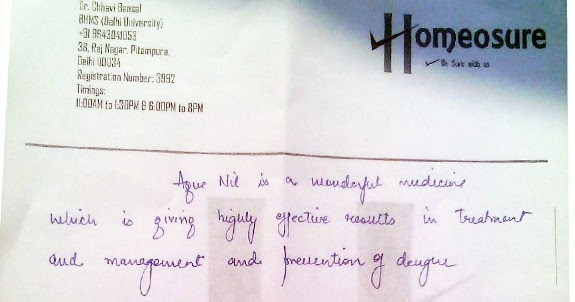 Dr. Chhavi Bansal
BHMS (Delhi University)
+91 9643041053
38, Raj Nagar, Pitampura,
Delhi 110034
Registration Number: 3992
Timings:
11:00AM to 1:30PM & 6:00PM to 8PM
Homeosure
Be Sure with us
Ague Nil is a wonderful medicine
which is giving highly effective results in treatment
and management and prevention of dengue